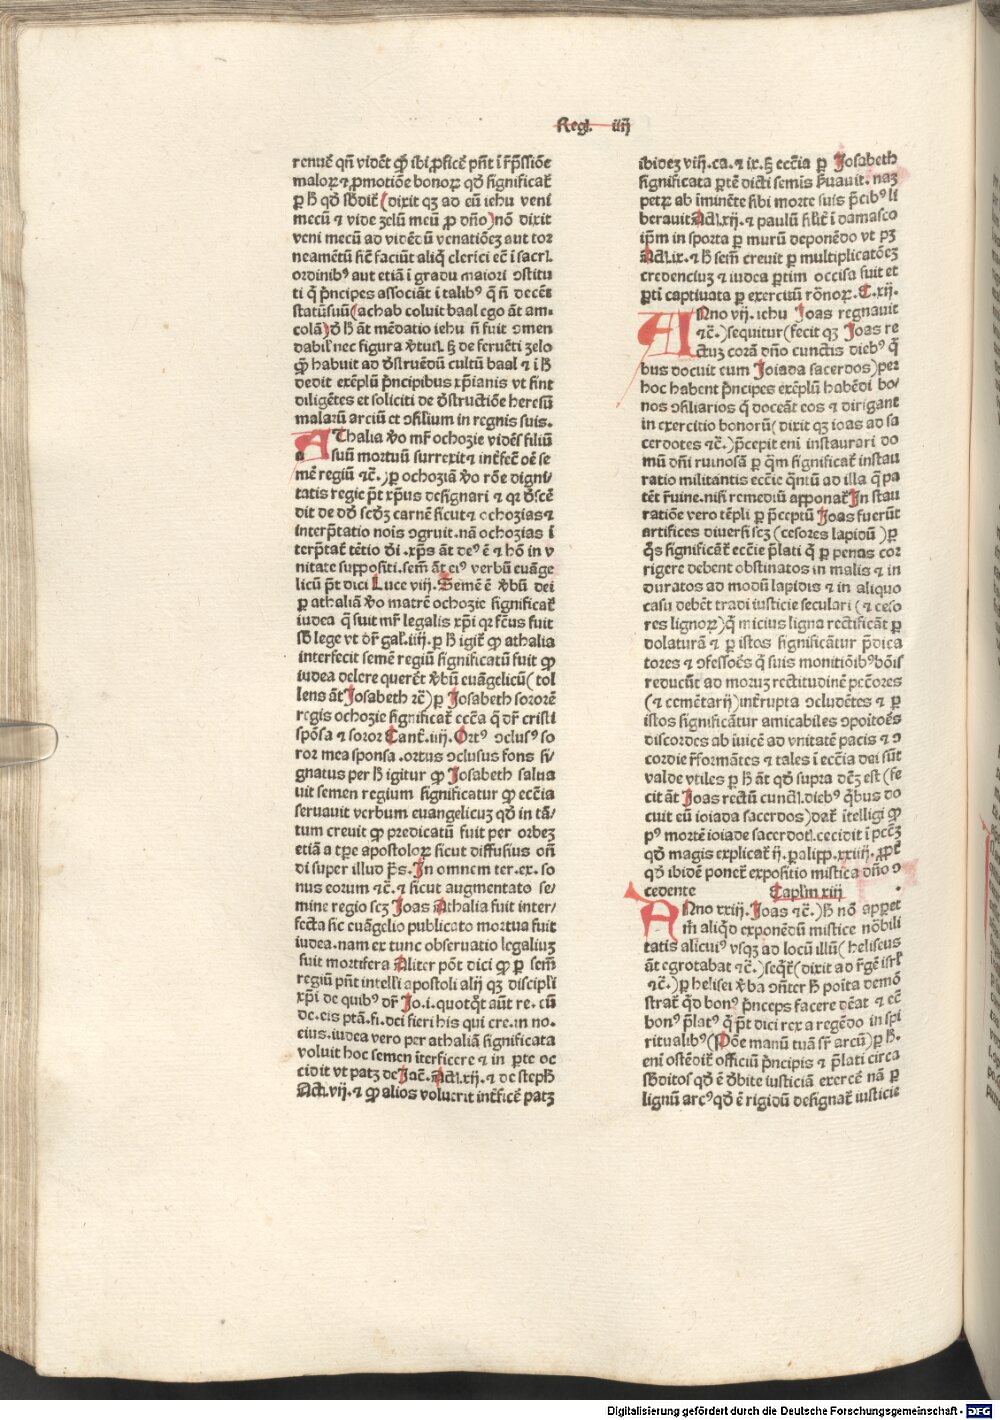 Regl. iiij
renuē qñ vidēt ꝙ ibi ꝓficē pñt ī r̄p̄ssiōe
maloꝝ ⁊ ꝓmotiōe bonoꝝ qđ significat̄
ꝑ ħ qđ sb̄dit̄ (dixit qꝫ ad eū iehu veni
mecū ⁊ vide zelū meū ꝓ dño) nō dixit
veni mecū ad vidēdū venatiōeꝫ aut tor
neamētū sic̄ faciūt aliq̄ clerici eē ī sacrꝭ
ordinibꝰ aut etiā ī gradu maiori ↄstitu
ti q̄ p̄ncipes associāt ī talibꝰ q̄ ñ decēt
statūsuū (achab coluit baal ego āt am-
colā) ꝺ ħ āt mēdatio iehu ñ fuit ↄmen
dabiꝉ nec figura v̄tutꝭ ꝫ de feruēti zelo
ꝙ habuit ad ꝺstruēdū cultū baal ⁊ ī ħ
dedit exēplū p̄ncipibus xp̄ianis vt sint
diligētes et soliciti de ꝺstructiōe heresū
malarū arciū et ↄsilium in regnis suis.
AThalia v̄o mr̄ ochozie vidēs filiū
suū mortuū surrexit ⁊ int̄fec̄ oē se
mē regiū ⁊c̄.) ꝑ ochoziā v̄o rōe digni
tatis regie p̄t xp̄us designari ⁊ qꝛ ꝺscē
dit de dđ scđꝫ carnē sicut ⁊ ochozias ⁊
interp̄tatio nois ↄgruit. nā ochozias ī
terp̄tat̄ tētio ꝺi. xp̄s āt deꝰ ē ⁊ hō in v
nitate suppositi. sem̄ āt eiꝰ verbū euāge
licū p̄t dici Luce viij. Semē ē v̄bū dei
ꝑ athaliā v̄o matrē ochozie significat̄
iudea q̄ fuit mr̄ legalis xp̄i qꝛ fc̄us fuit
sb̄ lege vt dr̄ gaꝉ. iiij. ꝑ ħ igit̄ ꝙ athalia
interfecit semē regiū significatū fuit ꝙ
iudea delere querēt v̄bū euāgelicū (tol
lens āt Josabeth ⁊c̄) ꝑ Josabeth sororē
regis ochozie significat̄ ecc̄a q̄ dr̄ cristi
spōsa ⁊ soror Cant̄. iiij. Ortꝰ ↄclusꝰ so
ror mea sponsa. ortus ↄclusus fons si-
gnatus per ħ igitur ꝙ Josabeth salua
uit semen regium significatur ꝙ ecc̄ia
seruauit verbum euangelicuꝫ qđ in tā/
tum creuit ꝙ predicatū fuit per orbeꝫ
etiā a tꝑe apostoloꝝ sicut diffusius on̄
di super illud p̄s. In omnem ter. ex. so
nus eorum ⁊c̄. ⁊ sicut augmentato se/
mine regio scꝫ Joas Athalia fuit inter/
fecta sic euāgelio publicato mortua fuit
iudea. nam ex tunc obseruatio legaliuꝫ
fuit mortifera Aliter pōt dici ꝙ ꝑ sem̄
regiū pñt intelli apostoli alij qꝫ discipli
xp̄i de quibꝰ dr̄ Jo. i. quotq̄t aūt re. eū
de. eis ptā. fi. dei fieri his qui cre. in no.
eius. iudea vero per athaliā significata
voluit hoc semen īterficere ⁊ in ꝑte oc
cidit vt patꝫ de Jac̄. Actꝭ. xij. ⁊ de stepħ
Act̄. vij. ⁊ ꝙ alios voluerit int̄ficē patꝫ
ibideꝫ viij. ca. ⁊ ix. ꝫ ecc̄ia ꝑ Josabeth
significata ꝑtē dicti semīs p̄uauit. naꝫ
petrꝫ ab īminēte sibi morte suis p̄cibꝰ li
berauit Actꝭ. xij. ⁊ paulū siꝉit̄ ī damasco
ip̄m in sporta ꝑ murū deponēdo vt pꝫ
Actꝭ. ix. ⁊ ħ sem̄ creuit ꝑ multiplicatōeꝫ
credenciuꝫ ⁊ iudea ꝑtim occisa fuit et
ꝑti captiuata ꝑ exercitū rōnoꝝ. C. xij.
ANno vij. iehu Joas regnauit
⁊c̄.) sequitur (fecit qꝫ Joas re
ctuꝫ corā dño cunctis diebꝰ q̄
bus docuit eum Joiada sacerdos) per
hoc habent p̄ncipes exēplū habēdi bo/
nos ↄsiliarios q̄ doceāt eos ⁊ dirigant
in exercitio bonorū (dixit qꝫ ioas ad sa
cerdotes ⁊c̄.) p̄cepit eni instaurari do
mū dñi ruinosā ꝑ q̄m significat̄ instau
ratio militantis ecc̄ie q̄ntū ad illa q̄ pa
tēt r̄uine. nisi remediū apponat̄ In stau
ratiōe vero tēpli ꝑ p̄ceptū Joas fuerūt
artifices diuersi scꝫ (cesores lapidū) ꝑ
q̄s significāt̄ ecc̄ie p̄lati q̄ ꝑ penas cor
rigere debent obstinatos in malis ⁊ in
duratos ad modū lapidis ⁊ in aliquo
casu debēt tradi iusticie seculari (⁊ ceso
res lignoꝝ) q̄ micius ligna rectificāt ꝑ
dolaturā ⁊ ꝑ istos significātur p̄dica
tores ⁊ ↄfessoēs q̄ suis monitiōibꝰ bōis
reducūt ad moruꝫ rectitudinē pctōres
(⁊ cemētarij) int̄rupta ↄcludētes ⁊ ꝑ
istos significātur amicabiles ↄpoitoēs
discordes ab īuicē ad vnitatē pacis ⁊ ↄ
cordie r̄formātes ⁊ tales ī ecc̄ia dei sūt
valde vtiles ꝑ ħ āt qđ supra dc̄ꝫ est (fe
cit āt Joas rectū cunctꝭ. diebꝰ q̄bus do
cuit eū ioiada sacerdos) dat̄ ītelligi ꝙ
pꝰ mortē ioiade sacerdotꝭ. cecidit ī pcc̄ꝫ
qđ magis explicat̄ ij. ꝑalipp. xxiiij. ꝓpt̄
qđ ibidē ponet̄ expositio mistica dño ↄ
cedente Caplm xiij
ANno xxiij. Joas ⁊c̄.) ħ nō apparet
mͥ aliqđ exponēdū mistice nōbili
tatis alicuiꝰ vsqꝫ ad locū illū (heliseus
āt egrotabat ⁊c̄.) seqt̄ (dixit ad r̄gē isrꝉ
⁊c̄.) ꝑ helisei v̄ba ↄn̄ter ħ poīta demō
strat̄ qđ bonꝰ p̄nceps facere dēat ⁊ eē
bonꝰ p̄latꝰ q̄ p̄t dici rex a regēdo in spi
ritualibꝰ (Pōe manū tuā sr̄ arcū) ꝑ ħ.
eni ostēdit̄ officiū p̄ncipis ⁊ p̄lati circa
sb̄ditos qđ ē ꝺbite iusticiā exercē nā ꝑ
lignū arcꝰ qđ ē rigidū designat̄ iusticie
Digitalisierung gefördert durch die Deutsche Forschungsgemeinschaft - DFG